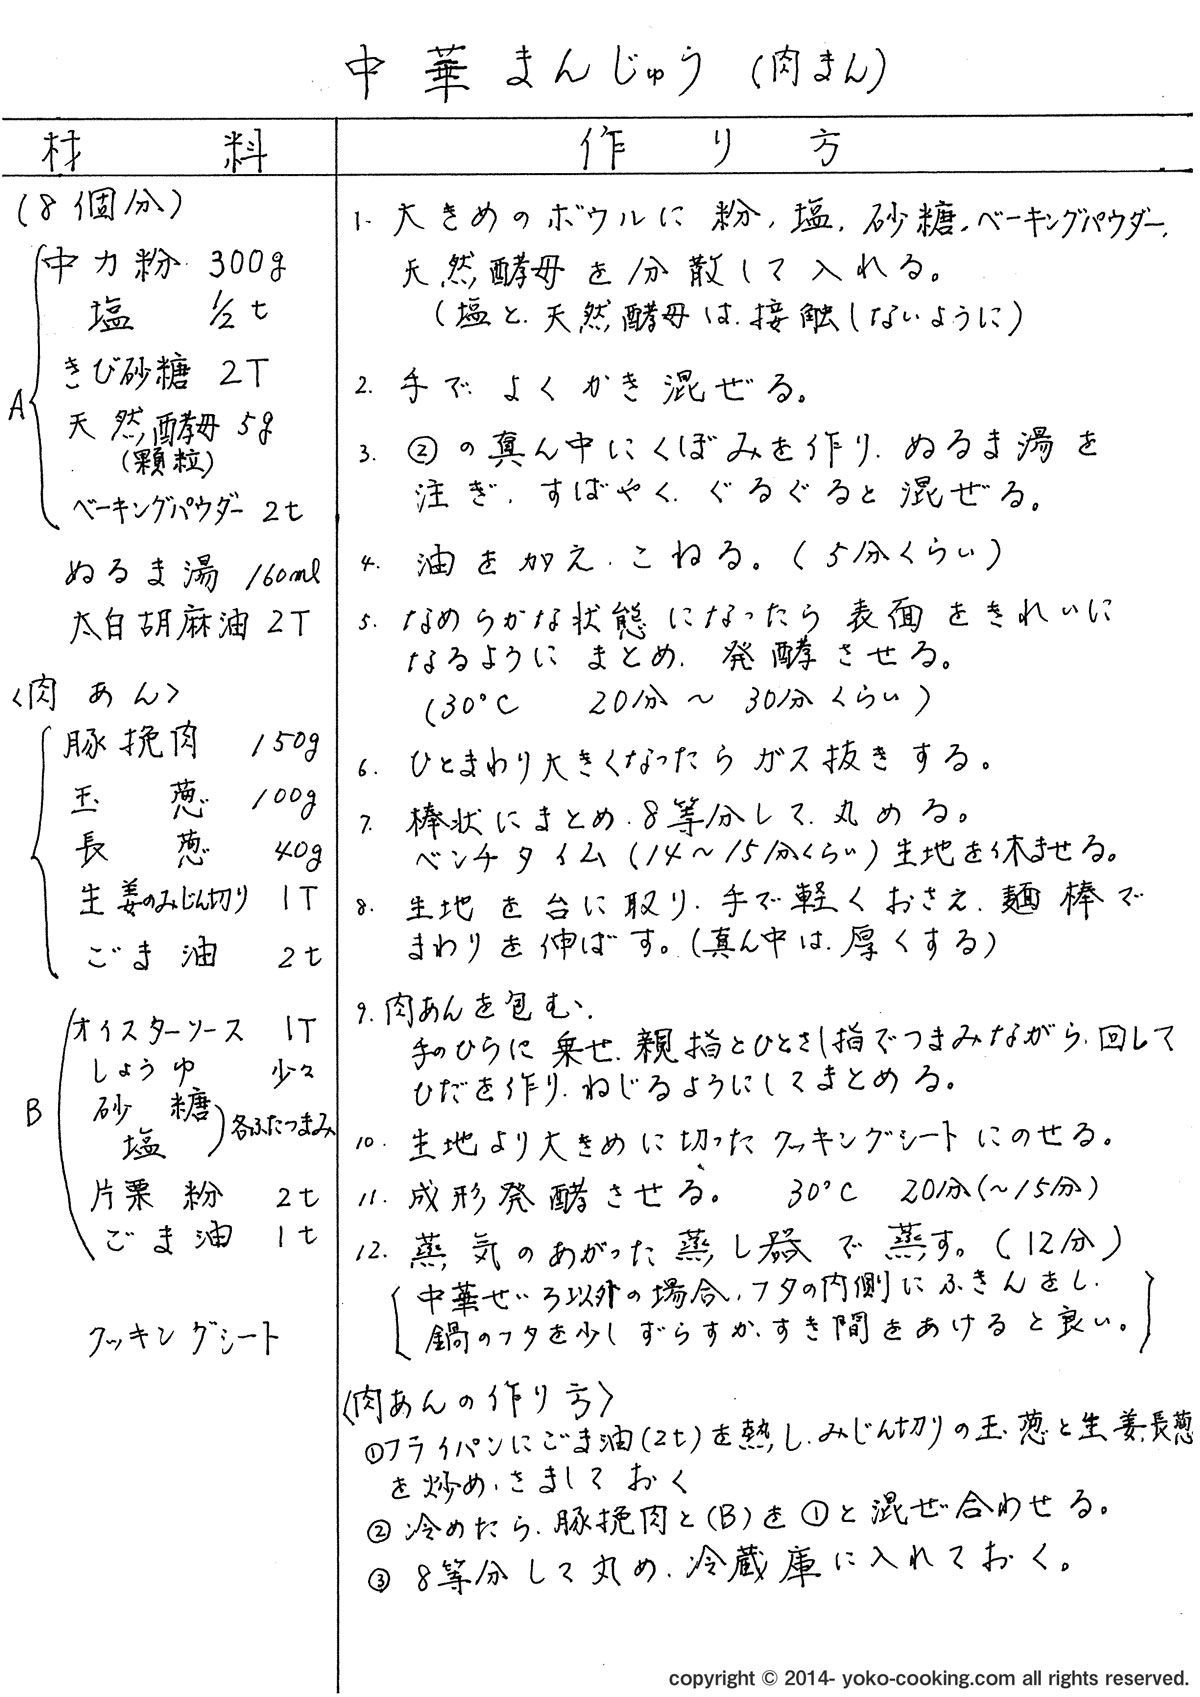 中華まんじゅう (肉まん)
材料
(8個分)
A
中力粉 300g
塩 1/2 t
きび砂糖 2T
天然酵母 5g
(顆粒)
ベーキングパウダー 2t
ぬるま湯 160ml
太白胡麻油 2T
<肉あん>
豚挽肉 150g
玉葱 100g
長葱 40g
生姜のみじん切り 1T
ごま油 2t
B
オイスターソース 1T
しょうゆ 少々
砂糖
塩
各ふたつまみ
片栗粉 2t
ごま油 1t
クッキングシート
作り方
1. 大きめのボウルに粉、塩、砂糖、ベーキングパウダー、
天然酵母を分散して入れる。
(塩と、天然酵母は、接触しないように)
2. 手で、よくかき混ぜる。
3. ②の真ん中にくぼみを作り、ぬるま湯を
注ぎ、すばやく、ぐるぐると混ぜる。
4. 油を加え、こねる。(5分くらい)
5. なめらかな状態になったら表面をきれいに
なるようにまとめ、発酵させる。
(30°C 20分〜30分くらい)
6. ひとまわり大きくなったらガス抜きする。
7. 棒状にまとめ、8等分して、丸める。
ベンチタイム(14〜15分くらい)生地を休ませる。
8. 生地を台に取り、手で軽くおさえ、麺棒で
まわりを伸ばす。(真ん中は、厚くする)
9. 肉あんを包む、
手のひらに乗せ、親指とひとさし指でつまみながら、回して
ひだを作り、ねじるようにしてまとめる。
10. 生地より大きめに切ったクッキングシートにのせる。
11. 成形発酵させる。 30°C 20分(〜15分)
12. 蒸気のあがった蒸し器で蒸す。(12分)
[中華せいろ以外の場合、フタの内側にふきんをし、
鍋のフタを少しずらすか、すき間をあけると良い。]
〈肉あんの作り方〉
①フライパンにごま油(2t)を熱し、みじん切りの玉葱と生姜、長葱
を炒め、さましておく
②冷めたら、豚挽肉と(B)を①と混ぜ合わせる。
③8等分して丸め、冷蔵庫に入れておく。
copyright © 2014- yoko-cooking.com all rights reserved.